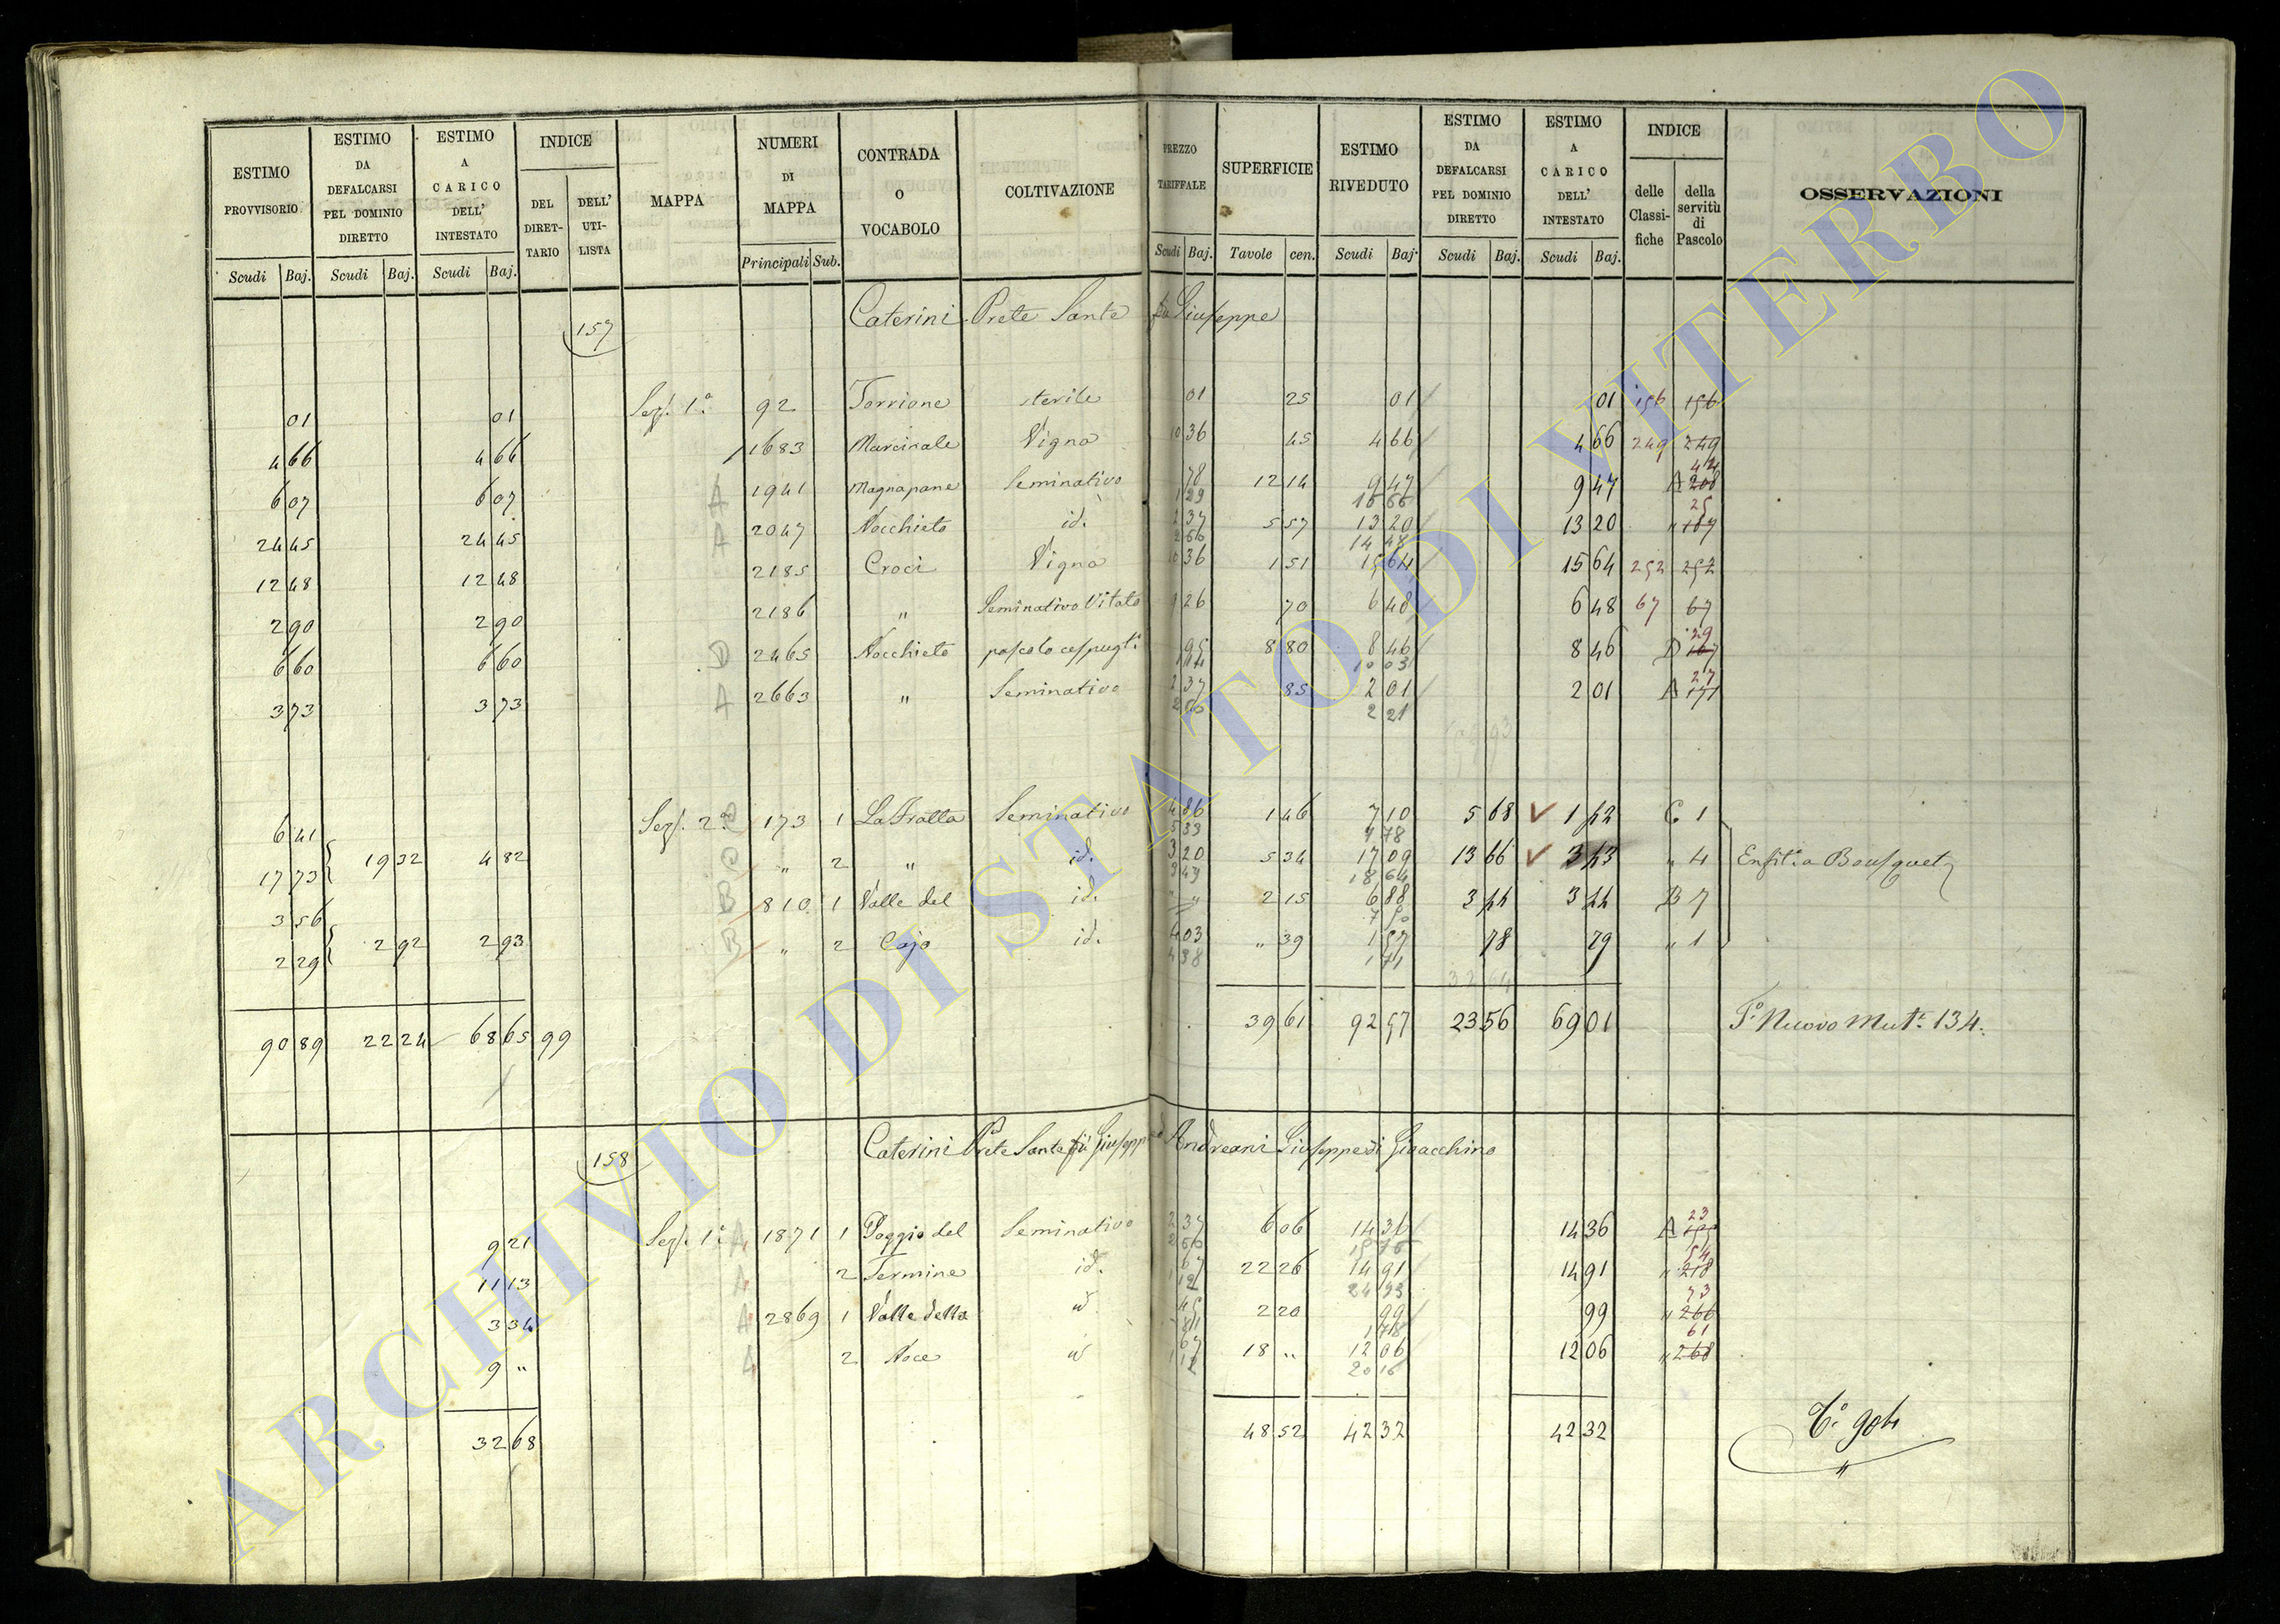 ESTIMO PROVVISORIO Scudi Baj. | ESTIMO DA DEFALCARSI PEL DOMINIO DIRETTO Scudi Baj. | ESTIMO A CARICO DELL' INTESTATO Scudi Baj. | INDICE DEL DIRETTARIO DELL' UTILISTA | MAPPA | NUMERI DI MAPPA Principali Sub. | CONTRADA O VOCABOLO | COLTIVAZIONE | PREZZO TARIFFALE Scudi Baj. | SUPERFICIE Tavole cen. | ESTIMO RIVEDUTO Scudi Baj. | ESTIMO DA DEFALCARSI PEL DOMINIO DIRETTO Scudi Baj. | ESTIMO A CARICO DELL' INTESTATO Scudi Baj. | INDICE delle Classifiche della servitù di Pascolo | OSSERVAZIONI
157 Caterini Prete Sante fu Giuseppe
01 01 Sez. 1ª 92 Torrione sterile 01 25 01 01 156 156
4 66 4 66 1683 Marcinale Vigna 10 36 45 4 66 4 66 249 249
6 07 6 07 A 1941 Magnapane Seminativo 78 12 14 9 47 9 47 A 208 44
1 29 16 66
24 45 24 45 A 2047 Nocchieto id. 2 37 5 57 13 20 13 20 " 187 25
2 60 14 48
12 48 12 48 2185 Croci Vigna 10 36 1 51 15 64 15 64 252 252
2 90 2 90 2186 " Seminativo Vitato 9 26 70 6 48 6 48 67 67
6 60 6 60 D 2465 Nocchieto pascolo cespugl. 95 8 80 8 46 8 46 D 167 29
1 14 10 03
3 73 3 73 A 2663 " Seminativo 2 37 85 2 01 2 01 A 171 27
2 60 2 21
6 41 Sez. 2ª C 173 1 La Fratta Seminativo 4 86 1 46 7 10 5 68 1 42 C 1
5 33 7 78
17 73 19 32 4 82 C " 2 " id. 3 20 5 34 17 09 13 66 3 43 " 4 Enfit. a Bousquet
3 49 18 64
3 56 B 810 1 Valle del id. " " 2 15 6 88 3 44 3 44 B 7
7 50
2 29 2 92 2 93 B " 2 Cajo id. 4 03 " 39 1 57 78 79 " 1
4 38 1 71
32 64
90 89 22 24 68 65 99 39 61 92 57 23 56 69 01 Tº Nuovo Mutª 134.
158 Caterini Prete Sante fu Giuseppe Andreani Giuseppe di Gioacchino
9 21 Sez. 1ª A 1871 1 Poggio del Seminativo 2 37 6 06 14 36 14 36 A 23
2 60 15 76
11 13 A 2 Termine id. 67 22 26 14 91 14 91 " 218 54
1 12 24 93
3 34 A 2869 1 Valle della id 45 2 20 99 99 " 266 73
81 1 78
9 " A 2 Noce id 67 18 " 12 06 12 06 " 268 61
1 12 20 16
32 68 48 52 42 32 42 32
ARCHIVIO DI STATO DI VITERBO